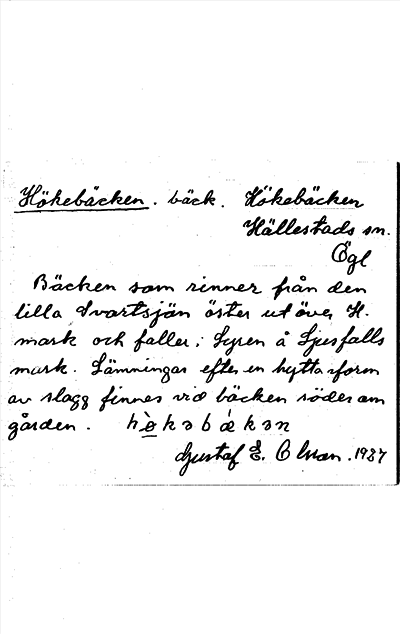 Hökebäcken. bäck. Hökebäcken
Hällestads sn.
Ögl
Bäcken som rinner från den
lilla Svartsjön öster ut över H.
mark och faller i Syren å Ljusfalls
mark. Lämningar efter en hytta i form
av slagg finnes vid bäcken söder om
gården. hø̀kəbǽkən
Gustaf E. Olsson. 1937